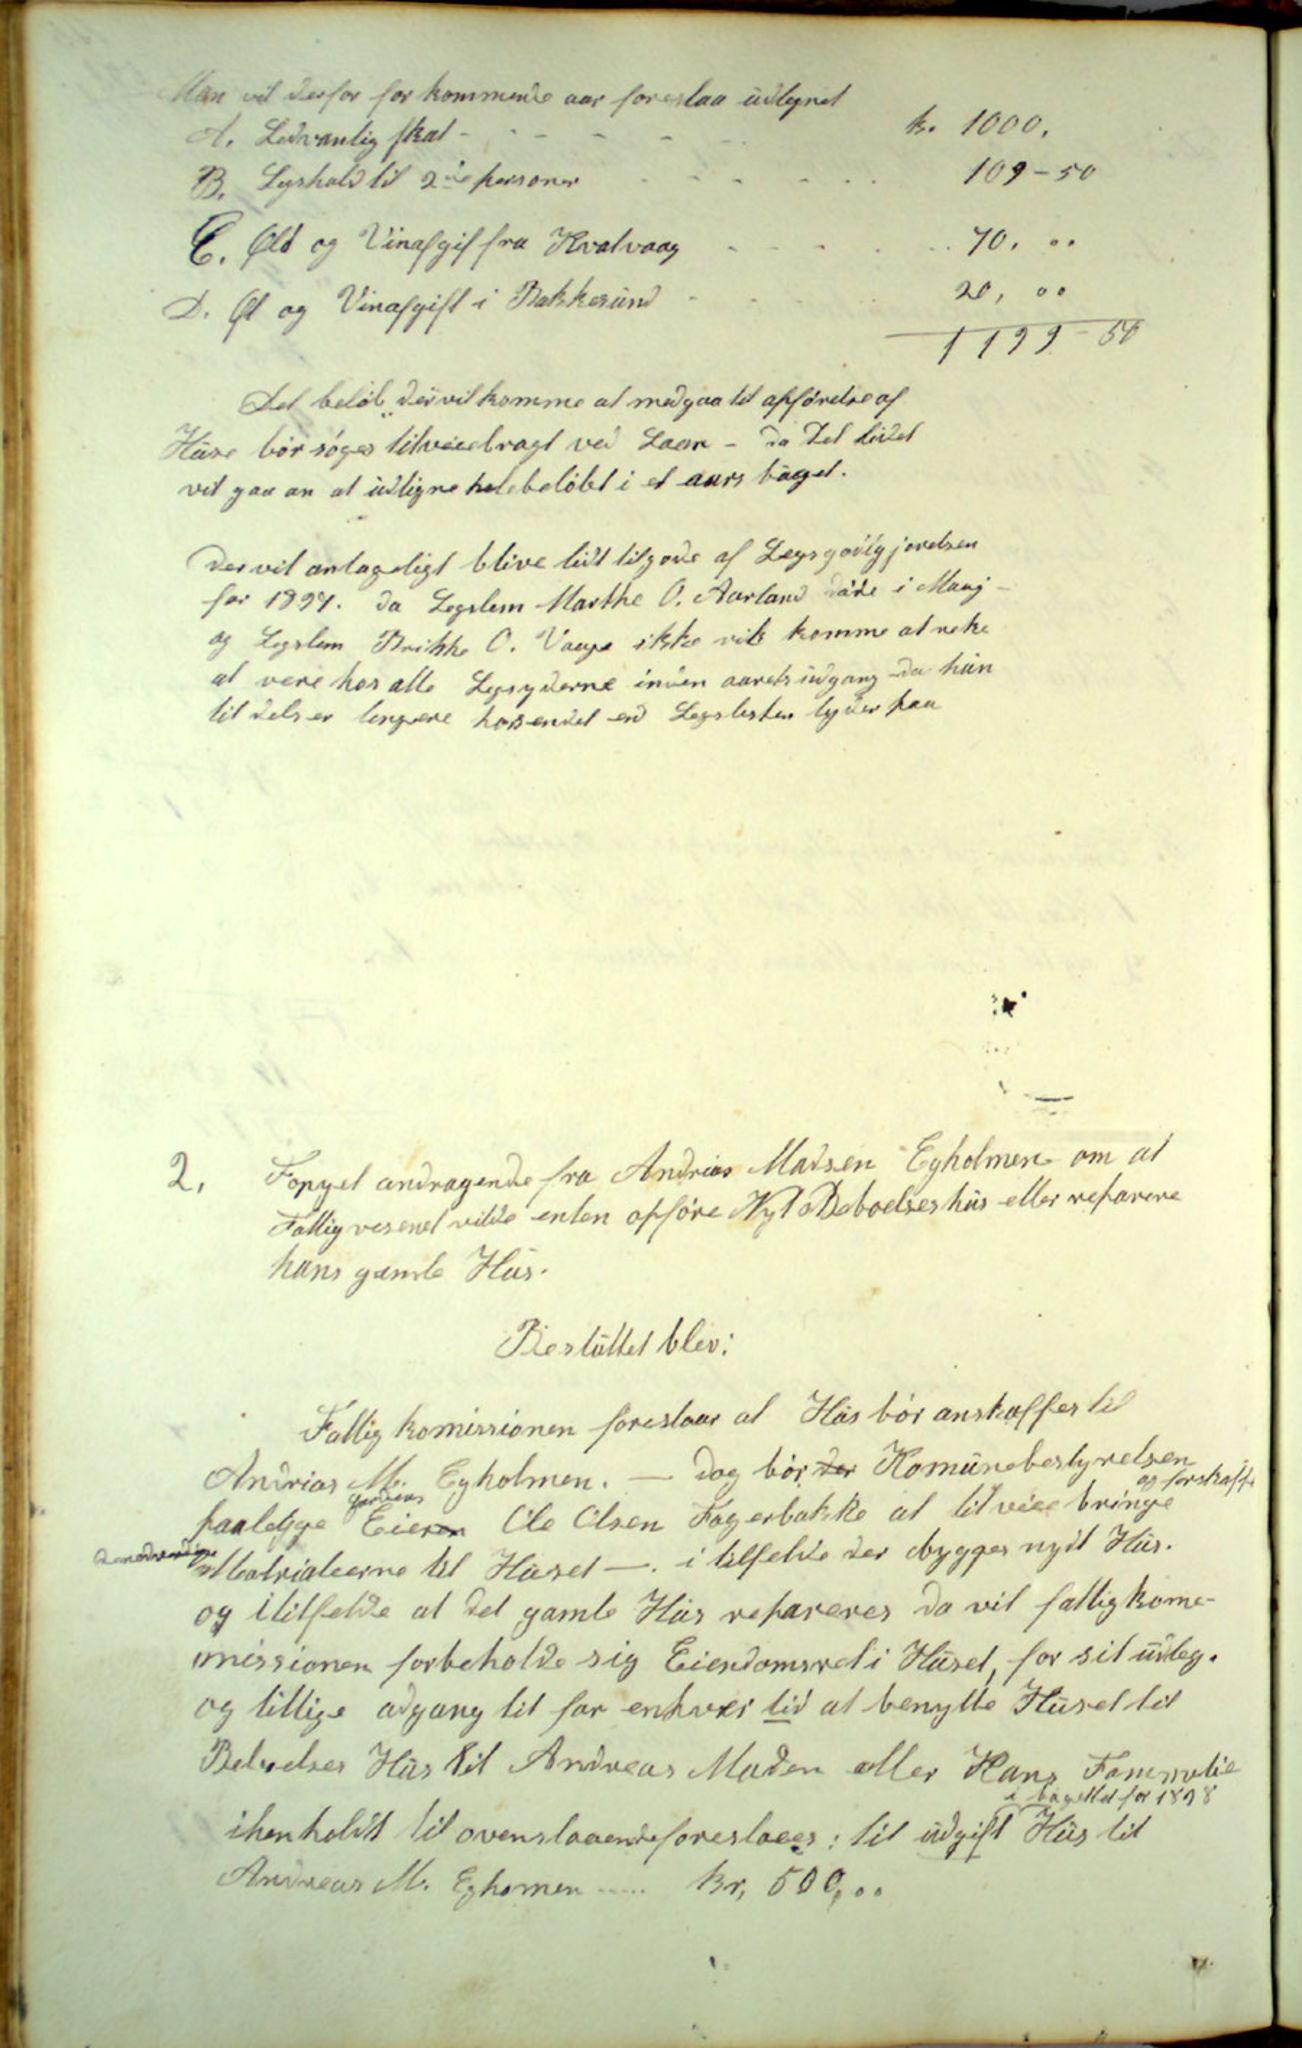 Man vil derfor for kommende aar foreslaa udlignet
A. Sedvanlig skat - - - - - kr. 1000.
B. Legshold til 2de personer - - - - - 109-50
C. Øld og Vinafgif fra Kvalvaag - - - - 70. 00
D. Øl og Vinafgift i Bakkesund - - - 20, 00
1199-50
Det beløb der vil komme at medgaa til opførelse af
Huse bør søges tilveiebragt ved Laan - da Det lidet
vil gaa an at udligne hele beløbet i et aars buget.
Der vil antageligt blive lidt tilgode af Legsgodtgjørelsen
for 1897. da Legslem Marthe O. Aarland døde i Maaj -
og Legslem Brithe O. Vaage ikke vil komme at reke
at vere hos alle Legsyderne inden aarets udgang - da hun
til dels er lengere hos endel end Legslisten lyder paa
2. Fonyet andragende fra Andrias Madsen Egholmen om at
Fattigvesenet vilde enten opføre Nyt Beboelseshus eller reparere
hans gamle Hus.
Besluttet blev:
Fattigkomissionen foreslaar at Hus bør anskaffes til
Andrias M. Egholmen. - dog bør der Komunebestyrelsen
paalegge Gardens Eieren Ole Olsen Fagerbakke at tilveie bringe og forskaffe
de nødvendige Matrialeerne til Huset -. i tilfelde der bygges nyt Hus.
og i tilfelde at det gamle Hus repareres da vil fattigkome-
missionen forbeholde sig Eiendomsret i Huset, for sit udleg.
og tillige adgang til for enhver tid at benytte Huset til
Beboelses Hus til Andreas Maden eller Hans Fammelie
ihenholdt til ovenstaaende foreslaaes: til udgift i bugettet for 1898 Hus til
Andreas M. Eghomen ..... Kr. 500,00